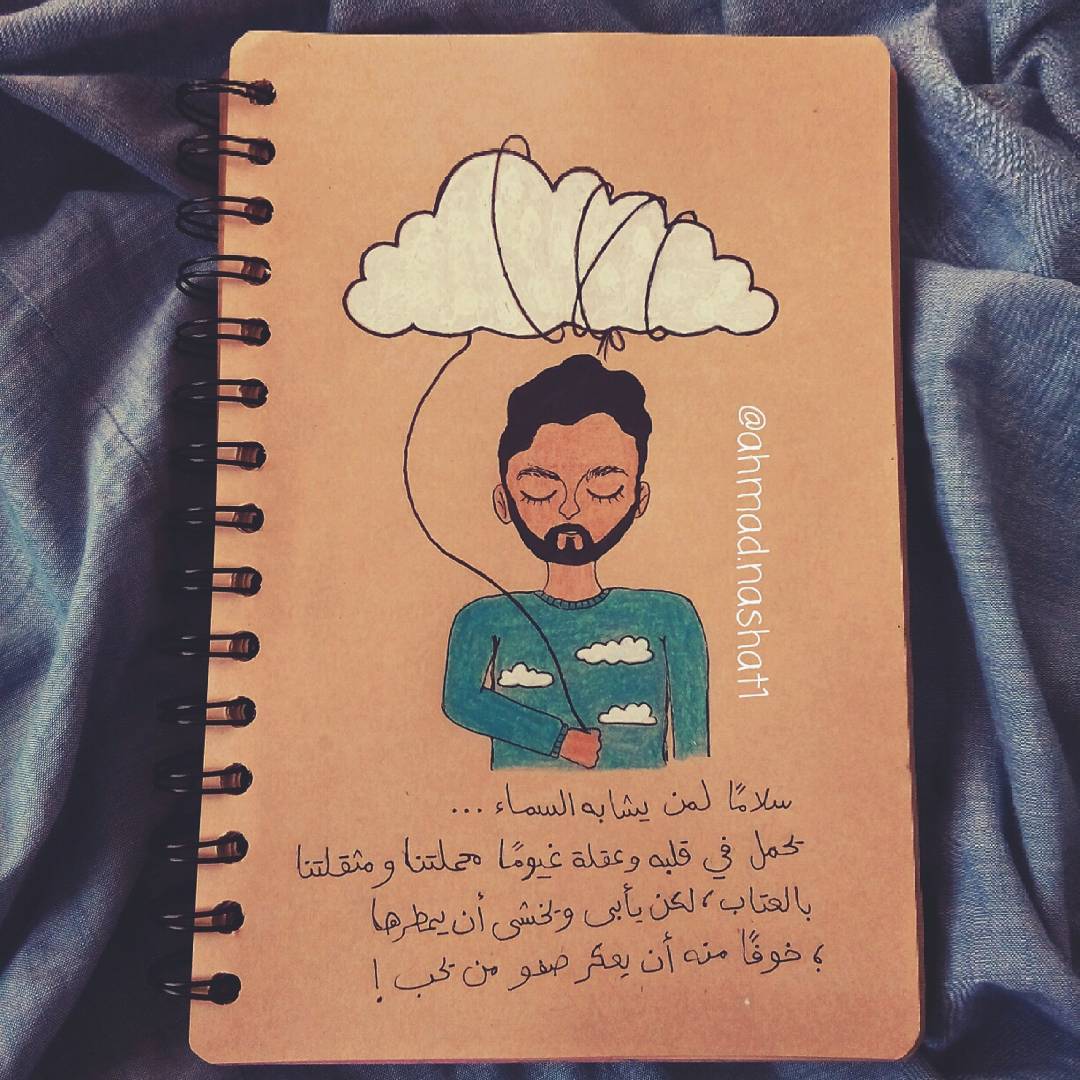 @ahmad.nashat1
سلامًا لمن يشابه السماء ...
تحمل في قلبه وعقلة غيومًا محملتنا ومثقلتنا
بالعتاب، لكن يأبى وتخشى أن يمطرها
، خوفًا منه أن يعكر صفو من تحب !